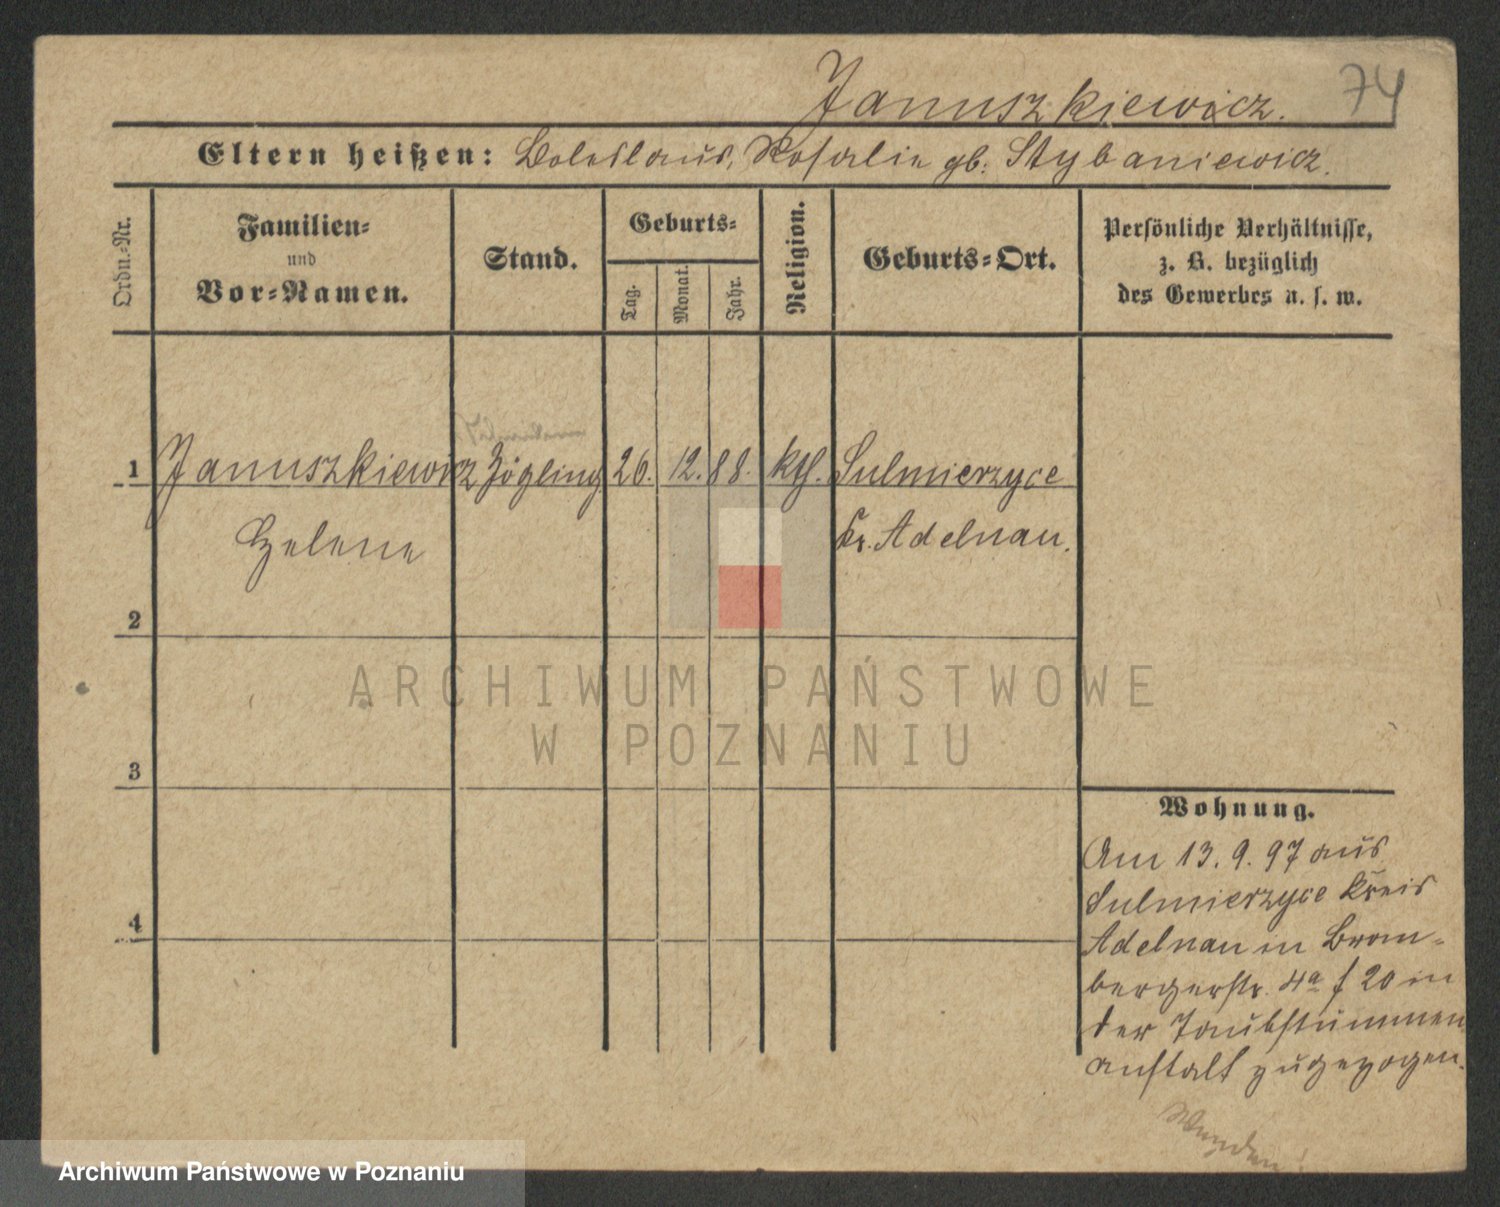 Januszkiewicz. 74
Eltern heißen: Boleslaus, Rosalie gb. Stybaniewicz.
Ordn.-Nr.
Familien-
und
Vor-Namen.
Stand.
Geburts-
Tag.
Monat.
Jahr.
Religion.
Geburts-Ort.
Persönliche Verhältnisse,
z. B. bezüglich
des Gewerbes u. s. w.
1 Januszkiewicz Zögling 26. 12. 88. kth. Sulmierzyce
Helene Kr. Adelnau.
2
3
4
Wohnung.
Am 13. 9. 97 aus
Sulmierzyce Kreis
Adelnau in Brom-
bergerstr. 4a f 20 in
der Taubstummen
anstalt zugezogen.
Wenden!
ARCHIWUM PAŃSTWOWE
W POZNANIU
Archiwum Państwowe w Poznaniu